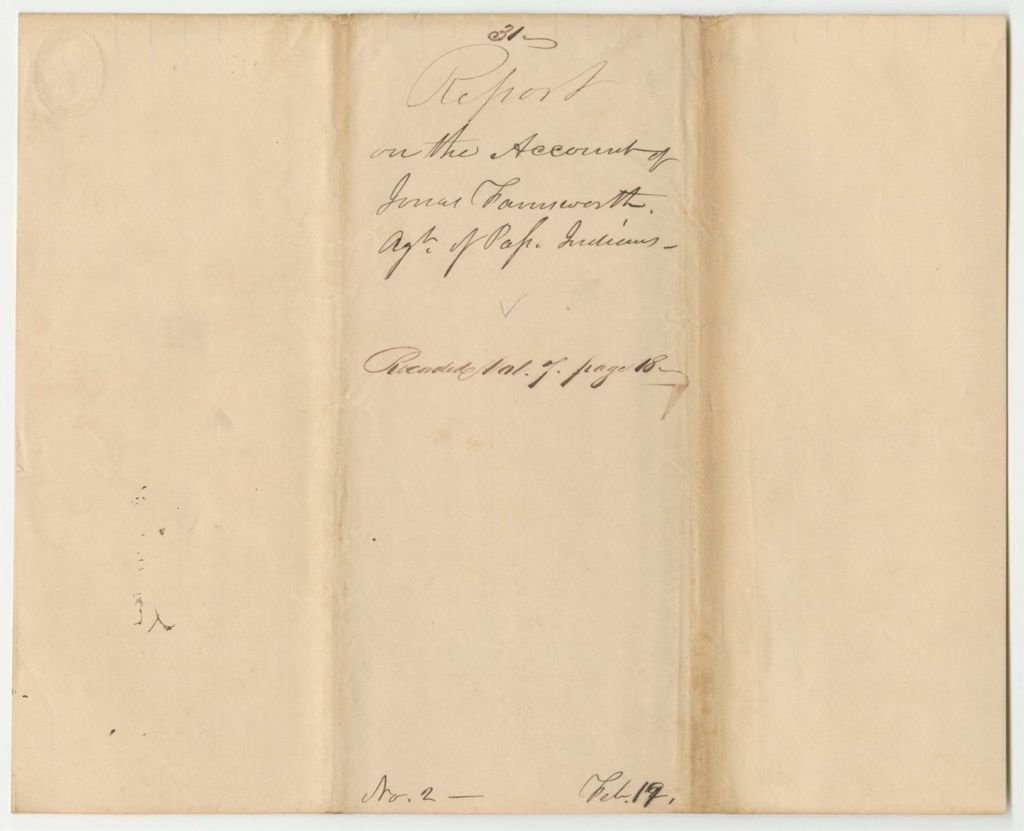 31
Report
on the Account of
Jonas Farnsworth.
Agt. of Pass. Indians-
Recorded Vol. 7. page 18-
No. 2 - Feb. 19.